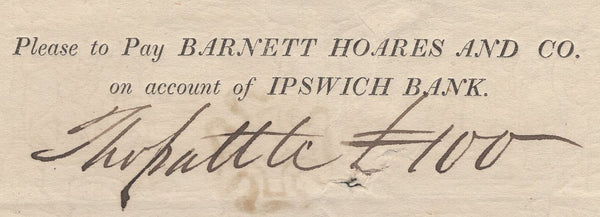 Please to Pay BARNETT HOARES AND CO.
on account of IPSWICH BANK.
£100